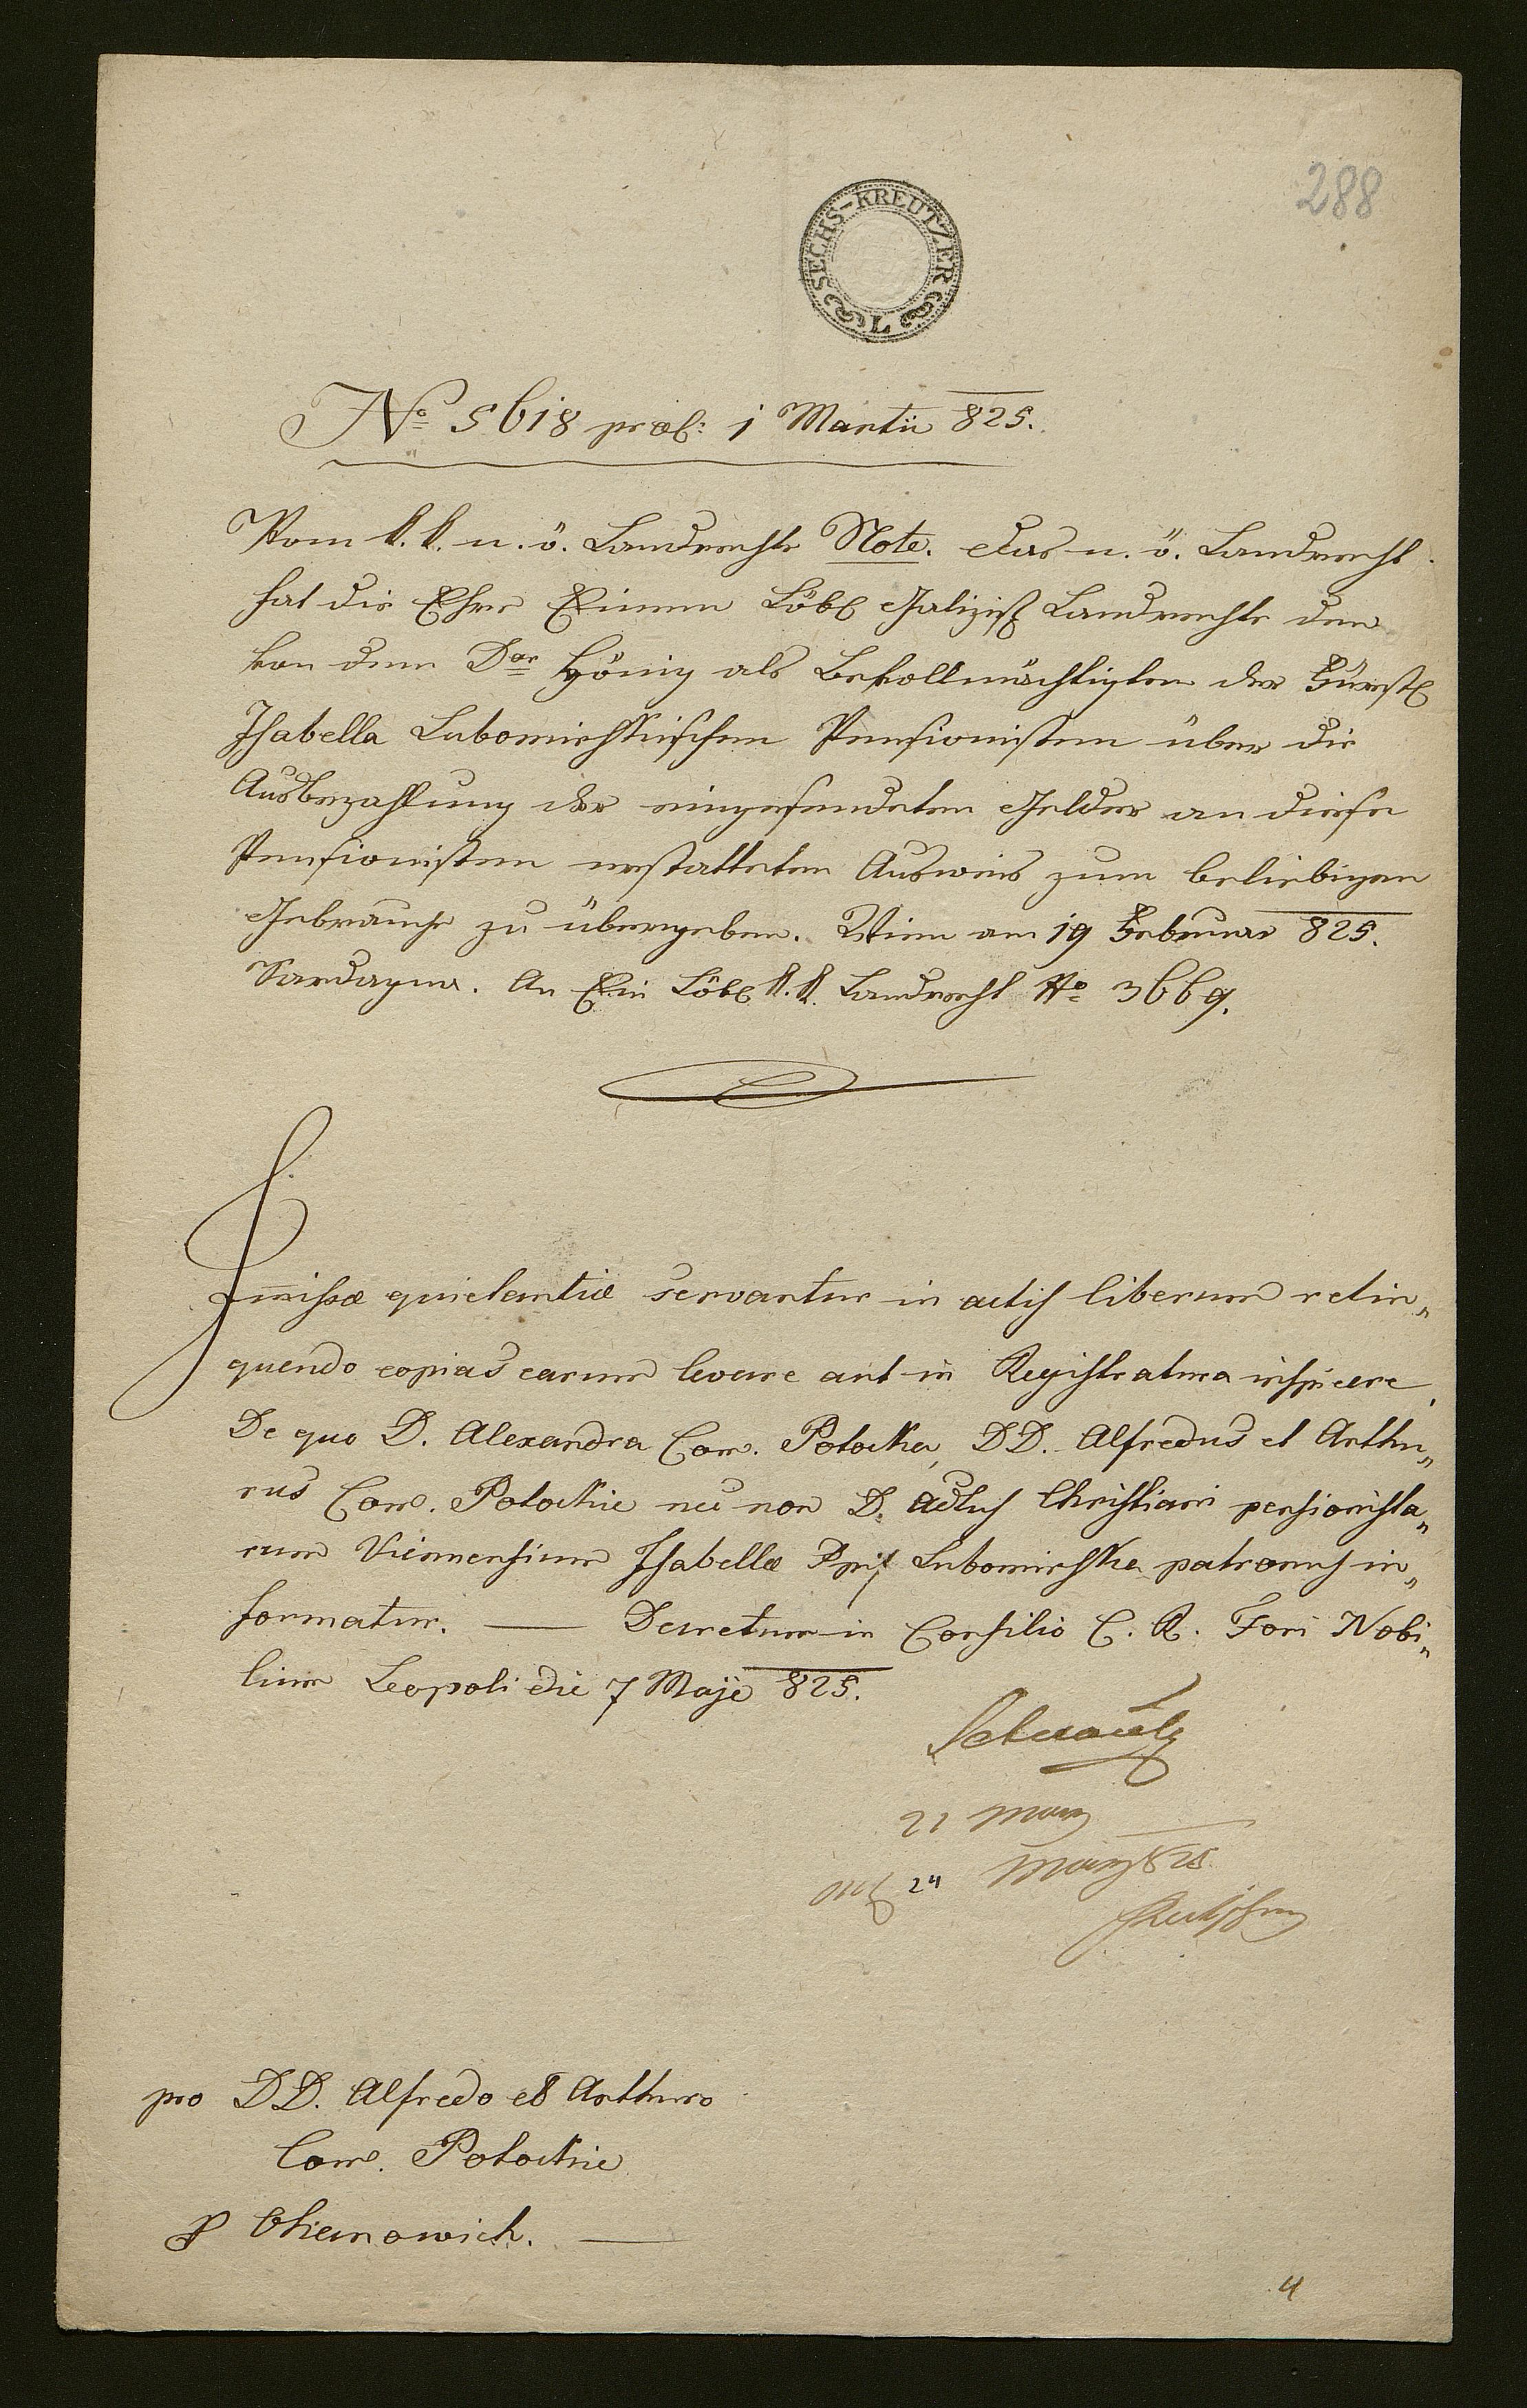 288
SECHS-KREUTZER
L
No 5618 præs: 1 Martii 825.
Vom k. k. n. ö. Landrechte Note. Das n. ö. Landrecht
hat die Ehre Einem Löbl Galizis Landrechte den
von dem Dor Hönig als Bevollmächtigten der Fürstl
Isabella Lubomirskischen Pensionisten über die
Ausbezahlung der eingesendeten Gelder an diese
Pensionisten erstatteten Ausweis zum beliebigen
Gebrauche zu übergeben. Wien am 19 Februar 825.
Sardagna. An Ein Löbl k. k. Landrecht No 3669.
Immissæ quietantiæ servantur in actis liberum relin„
quendo copias earum levare aut in Registratura inspicere.
De quo D. Alexandra Com. Potocka, DD. Alfredus et Arthu„
rus Com. Potockie nec non D. Adtus Christiani pensionista„
rum Viennensium Isabellæ Ppis Lubomirska patronus in„
formatur. — Decretum in Consilio C. R. Fori Nobi„
lium Leopoli die 7 Maji 825.
21 May
24 May 825
pro DD. Alfredo et Arthuro
Com. Potockie
4